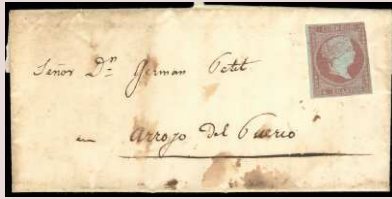 CORREOS
Señor Dn German Petit
en Arroyo del Puerco